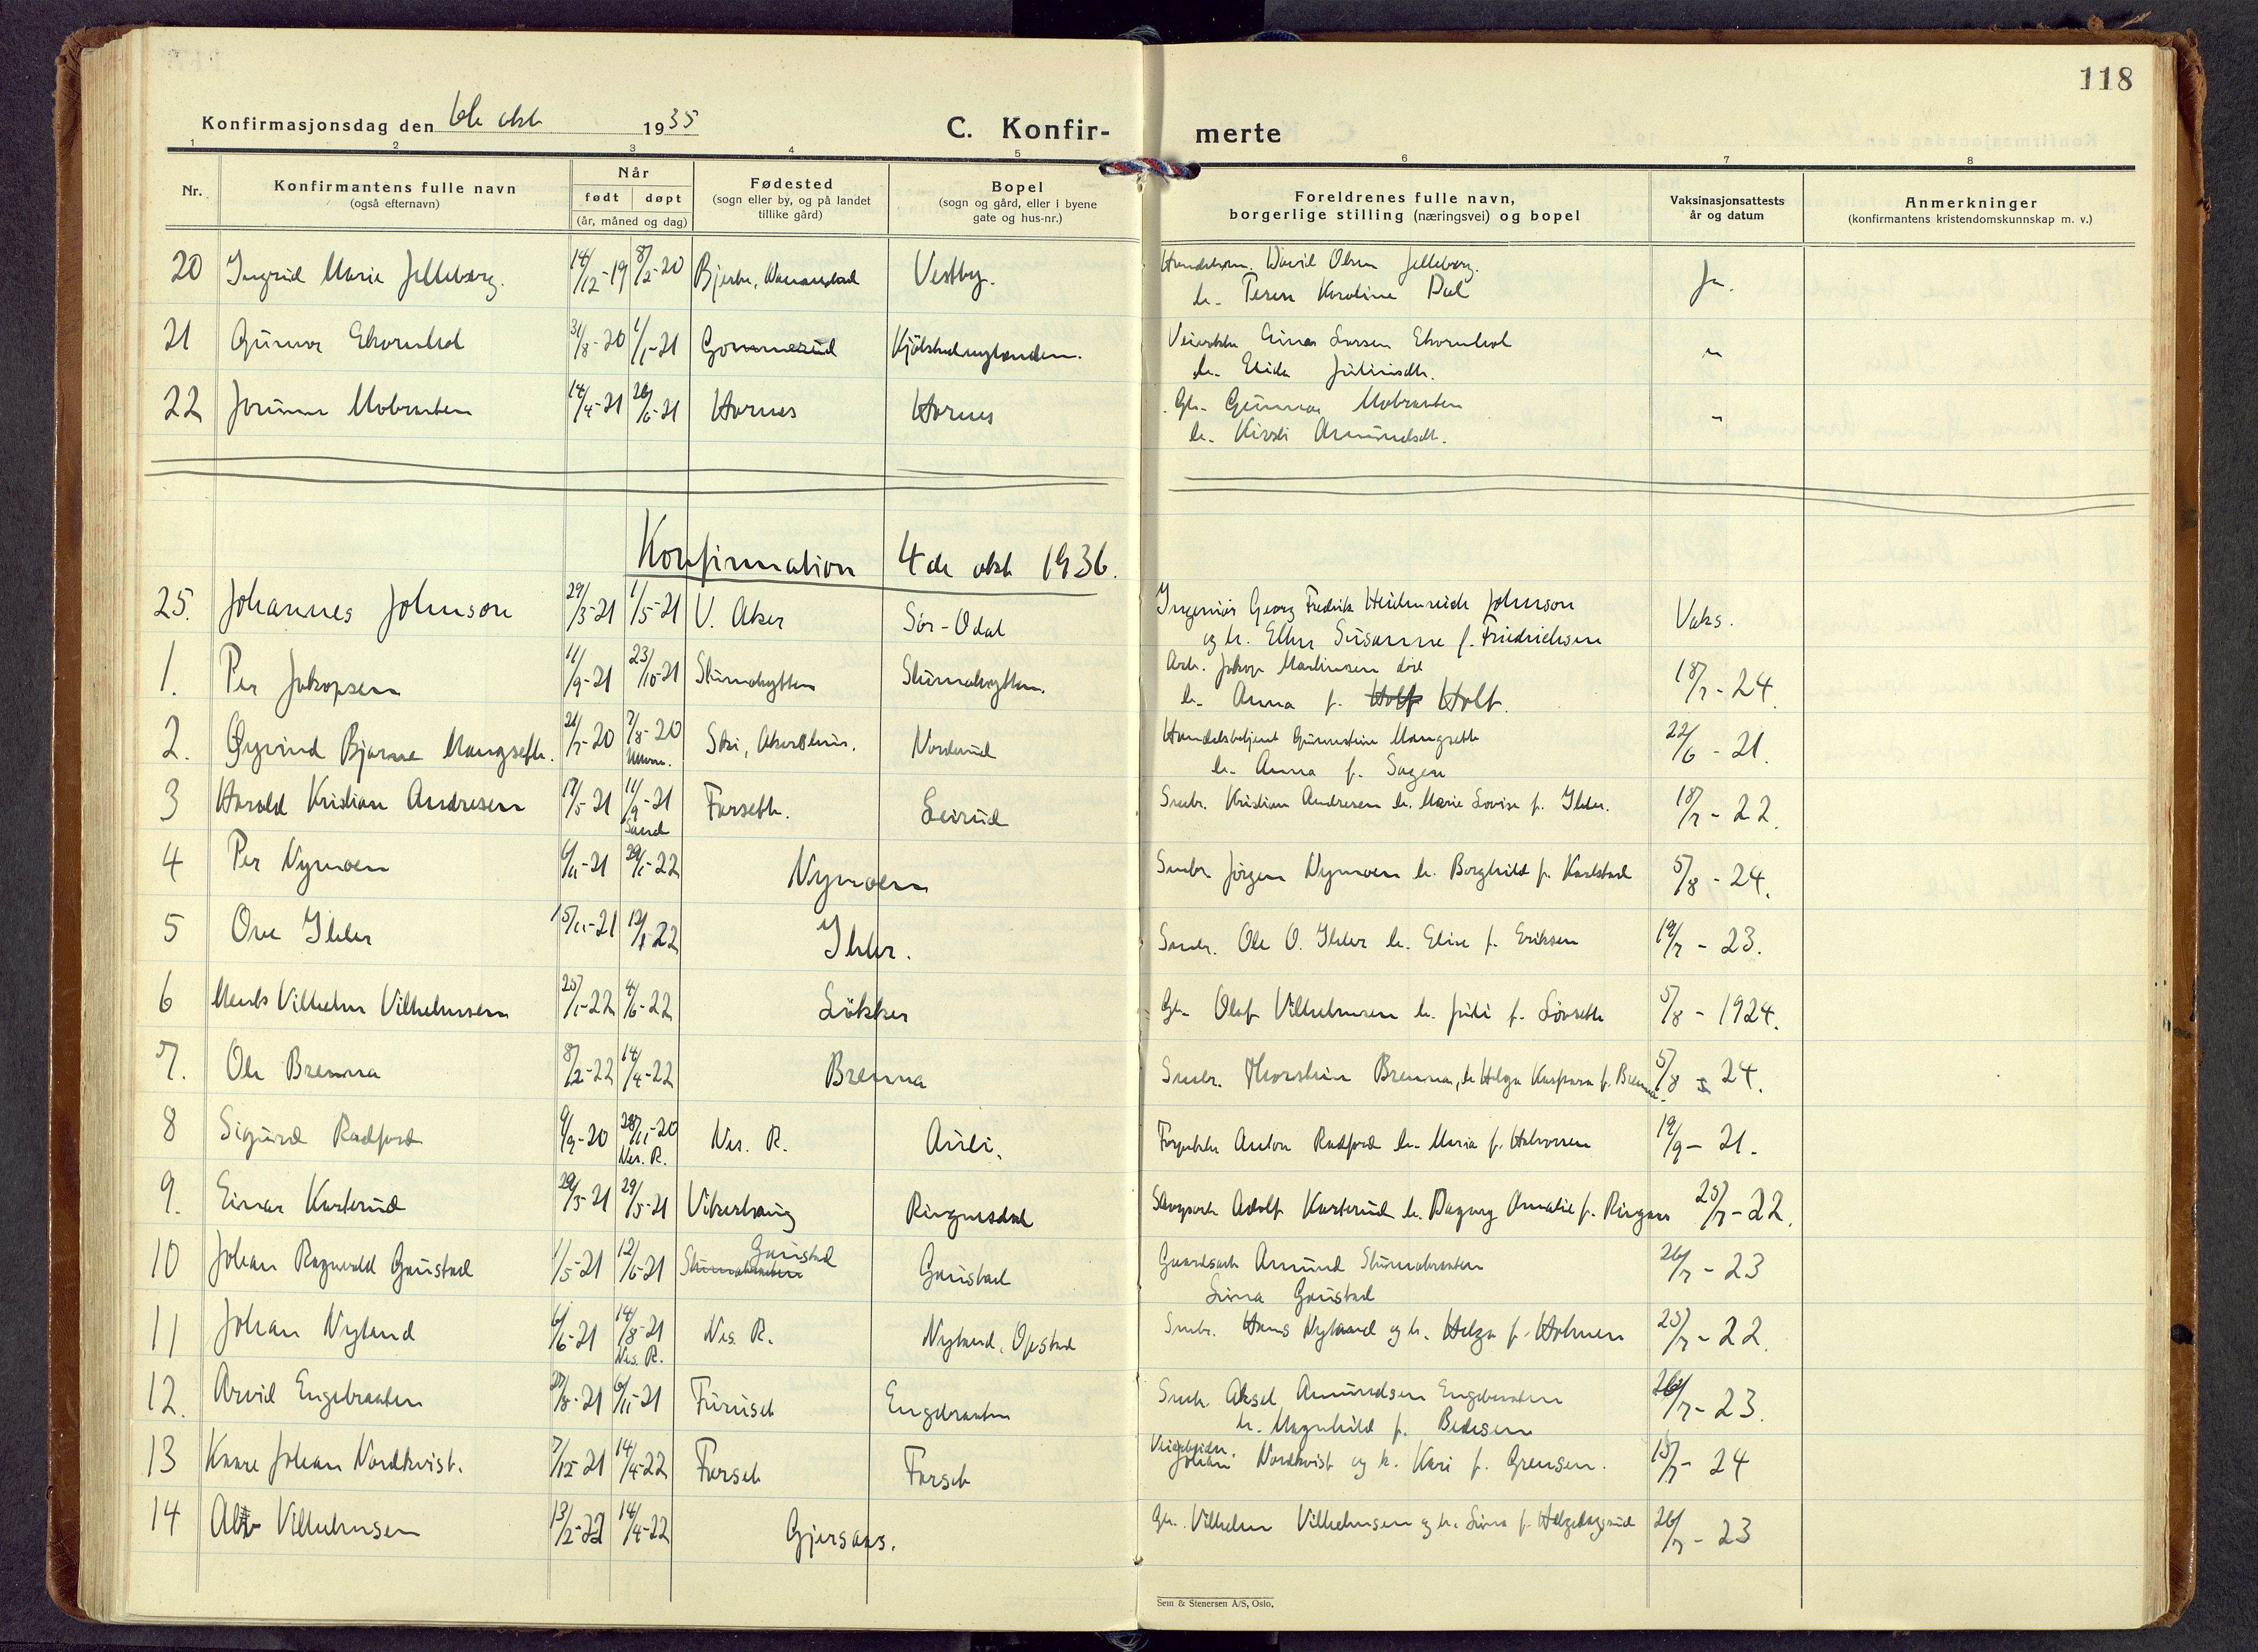 118
Konfirmasjonsdag den 6te okt 1935
C. Konfir-merte
1 2 3 4 5 6 7 8
Nr.
Konfirmantens fulle navn
(også efternavn)
Når
født døpt
(år, måned og dag)
Fødested
(sogn eller by, og på landet
tillike gård)
Bopel
(sogn og gård, eller i byene
gate og hus-nr.)
Foreldrenes fulle navn,
borgerlige stilling (næringsvei) og bopel
Vaksinasjonsattests
år og datum
Anmerkninger
(konfirmantens kristendomskunnskap m. v.)
20 Ingrid Marie Jelleberg. 14/12-19 8/2-20 Vestby. David Olsen Jelleberg. Ja.
h. Karoline Dal
21 Gunnar Ekornhol 31/8-20 1/1-21 Gommerud Einar Larsen Ekornhol "
h. Elida
22 Jorunn Mobraaten 14/4-21 26/6-21 Hornes Hornes Gbr. Gunnar Mobraaten "
h. Kirsti Amundsdtr.
Konfirmation 4de okt 1936.
25. Johannes Johnson 29/3-21 1/5-21 V. Aker Sør-Odal Ingeniør Georg Fredrik Johnson Vaks.
og h. Ellen Susanne f. Friedrichsen
1. Per Jakopsen 11/9-21 23/10-21 Arb. Jakop Martinsen død 18/7-24.
h. Anna f. Holt.
2. Øyvind Bjarne Mangseth. 21/7-20 7/8-20 Ski, Akershus. Norderud Handelsbetjent Gunnstein Mangseth 22/6-21.
h. Anna f. Sagen
3 Harald Kristian Andresen 17/5-21 11/9-21 Sand Farseth. Leirud Smbr. Kristian Andresen h. Marie Lovise f. Ihler. 18/7-22.
4 Per Nymoen 6/11-21 29/1-22 Nymoen Smbr Jørgen Nymoen h. Borghild f. Karlstad 5/8-24.
5 Ove Ihler 15/11-21 22 Ihler. Smbr. Ole O. Ihler h. Eline f. Eriksen 19/7-23.
6 Vilhelm Vilhelmsen 25/1-22 4/6-22 Løkker Gbr. Olaf Vilhelmsen h. Juli f. Løvseth 5/8-1924.
7. Ole Brenna 8/2-22 14/4-22 Brenna Smbr. Thorstein Brenna, h. Helga Kaspara f. Brenna. 5/8-24.
8 Sigurd Radford 9/9-20 28/11-20 Nes. R. Nes. R. Auli. Anton Radford h. Maria f. Halvorsen 19/9-21.
9. Einar Karterud 29/3-21 29/5-21 Vikerhaug Ringnesdal Skogsarb. Adolf Karterud h. Dagny Amalie f. Ringnes 25/7-22.
10 Johan Ragnvald Gaustad 1/5-21 12/6-21 Gaustad Gaustad Gaardsarb Amund Sturnobraaten 26/7-23
Gaustad
11 Johan Nyland 6/6-21 14/8-21 Nes. R. Nes. R. Nyland, Opstad Smbr. Hans Nyland og h. Helga f. Holmen 25/7-22.
12. Arvid Engebraaten 27/8-21 6/11-21 Furuset Engebraaten Smbr. Aksel Amundsen Engebraaten 26/7-23.
h. Magnhild f.
13 Kaare Johan Nordkvist. 7/12-21 14/4-22 Farset Farset Veiarbeider. Johan Nordkvist og h. Kari f. Grensen. 24
14 Alf Vilhelmsen 13/2-22 14/4-22 Gjersaas. Gbr. Vilhelm Vilhelmsen og h. f. Helgedagsrud 26/7-23
Sem & Stenersen A/S, Oslo.